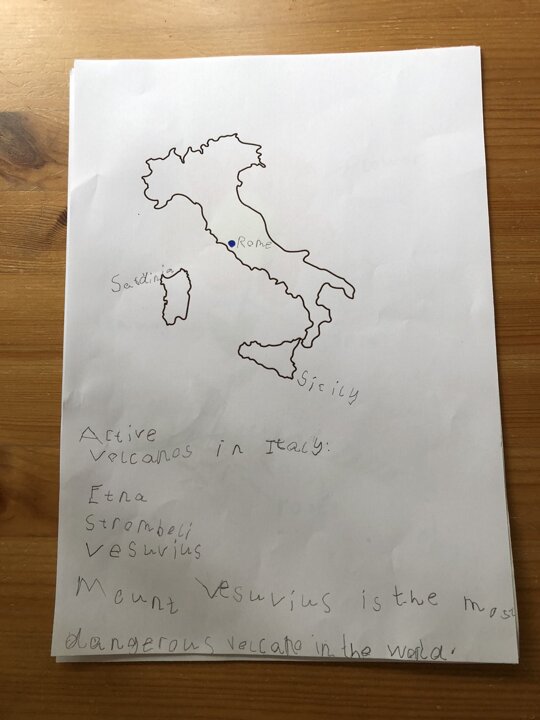 Rome
Sardinia
Sicily
Active
Volcanos in Italy:
Etna
Stromboli
Vesuvius
Mount Vesuvius is the most
dangerous volcano in the world.